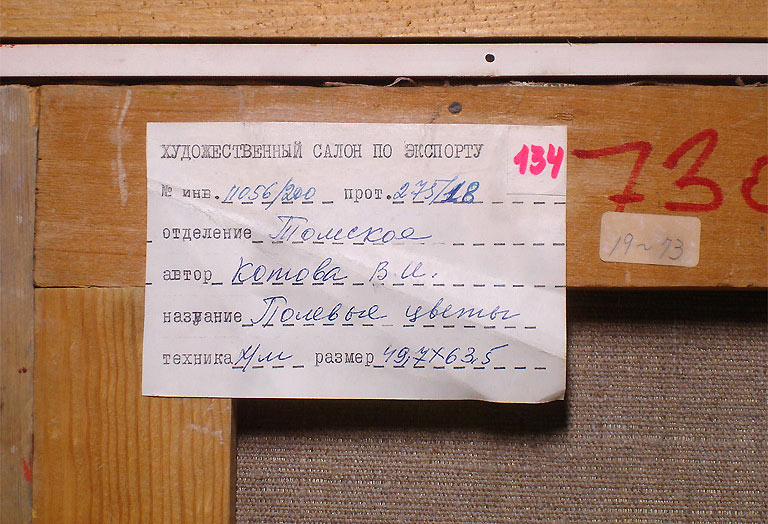 ХУДОЖЕСТВЕННЫЙ САЛОН ПО ЭКСПОРТУ
134
№ инв. 11056/200 прот. 275/18
отделение Томское
автор Котова В.И.
название Полевые цветы
техника х/м размер 49,7х63,5
730
19~73